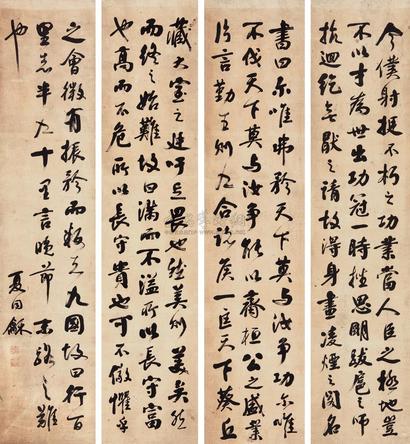 今僕射挺不朽之功業當人臣之極地豈
不以才為世出功冠一時挫思明跋扈之師
抗迴紇無厭之請故得身畫凌煙之閣名
書曰尔唯弗矜天下莫与汝爭功尔唯
不伐天下莫与汝爭能以齊桓公之盛業
片言勤王則九合諸侯一匡天下葵丘
藏太室之廷吁足畏也然美則美矣然
而終之始難故曰滿而不溢所以長守富
也高而不危所以長守貴也可不儆懼乎
之會微有振矜而叛者九國故曰行百
里者半九十里言晚節末路之難
也
夏同龢